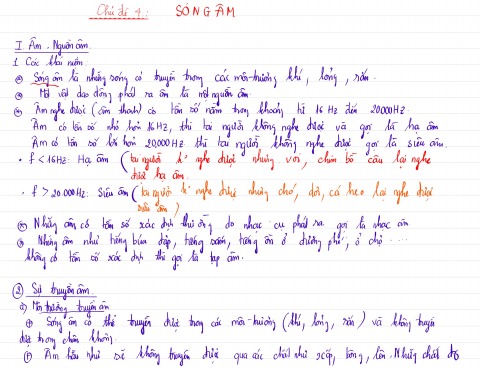 Chủ đề 4: SÓNG ÂM
I Âm. Nguồn âm.
1. Các khái niệm.
Sóng âm là những sóng cơ truyền trong các môi trường khí, lỏng, rắn.
Một vật dao động phát ra âm là một nguồn âm
Âm nghe được (âm thanh) có tần số nằm trong khoảng từ 16 Hz đến 20000 Hz.
Âm có tần số nhỏ hơn 16Hz, thì tai người không nghe được và gọi là hạ âm
Âm có tần số lớn hơn 20.000 Hz thì tai người không nghe được gọi là siêu âm.
• f < 16Hz: Hạ âm (tai người k° nghe được nhưng voi, chim bồ câu lại nghe
được hạ âm.
• f > 20.000Hz: Siêu âm (tai người k° nghe được nhưng chó, dơi, cá heo lại nghe được
siêu âm)
Những âm có tần số xác định thường do nhạc cụ phát ra gọi là nhạc âm
Những âm như tiếng búa đập, tiếng sấm, tiếng ồn ở đường phố, ở chợ ....
không có tần số xác định thì gọi là tạp âm.
2 Sự truyền âm.
a) Môi trường truyền âm
Sóng âm có thể truyền được trong các môi trường (khí, lỏng, rắn) và không truyền
được trong chân không.
Âm hầu như sẽ không truyền được qua các chất như xốp, bông, len. Những chất đó